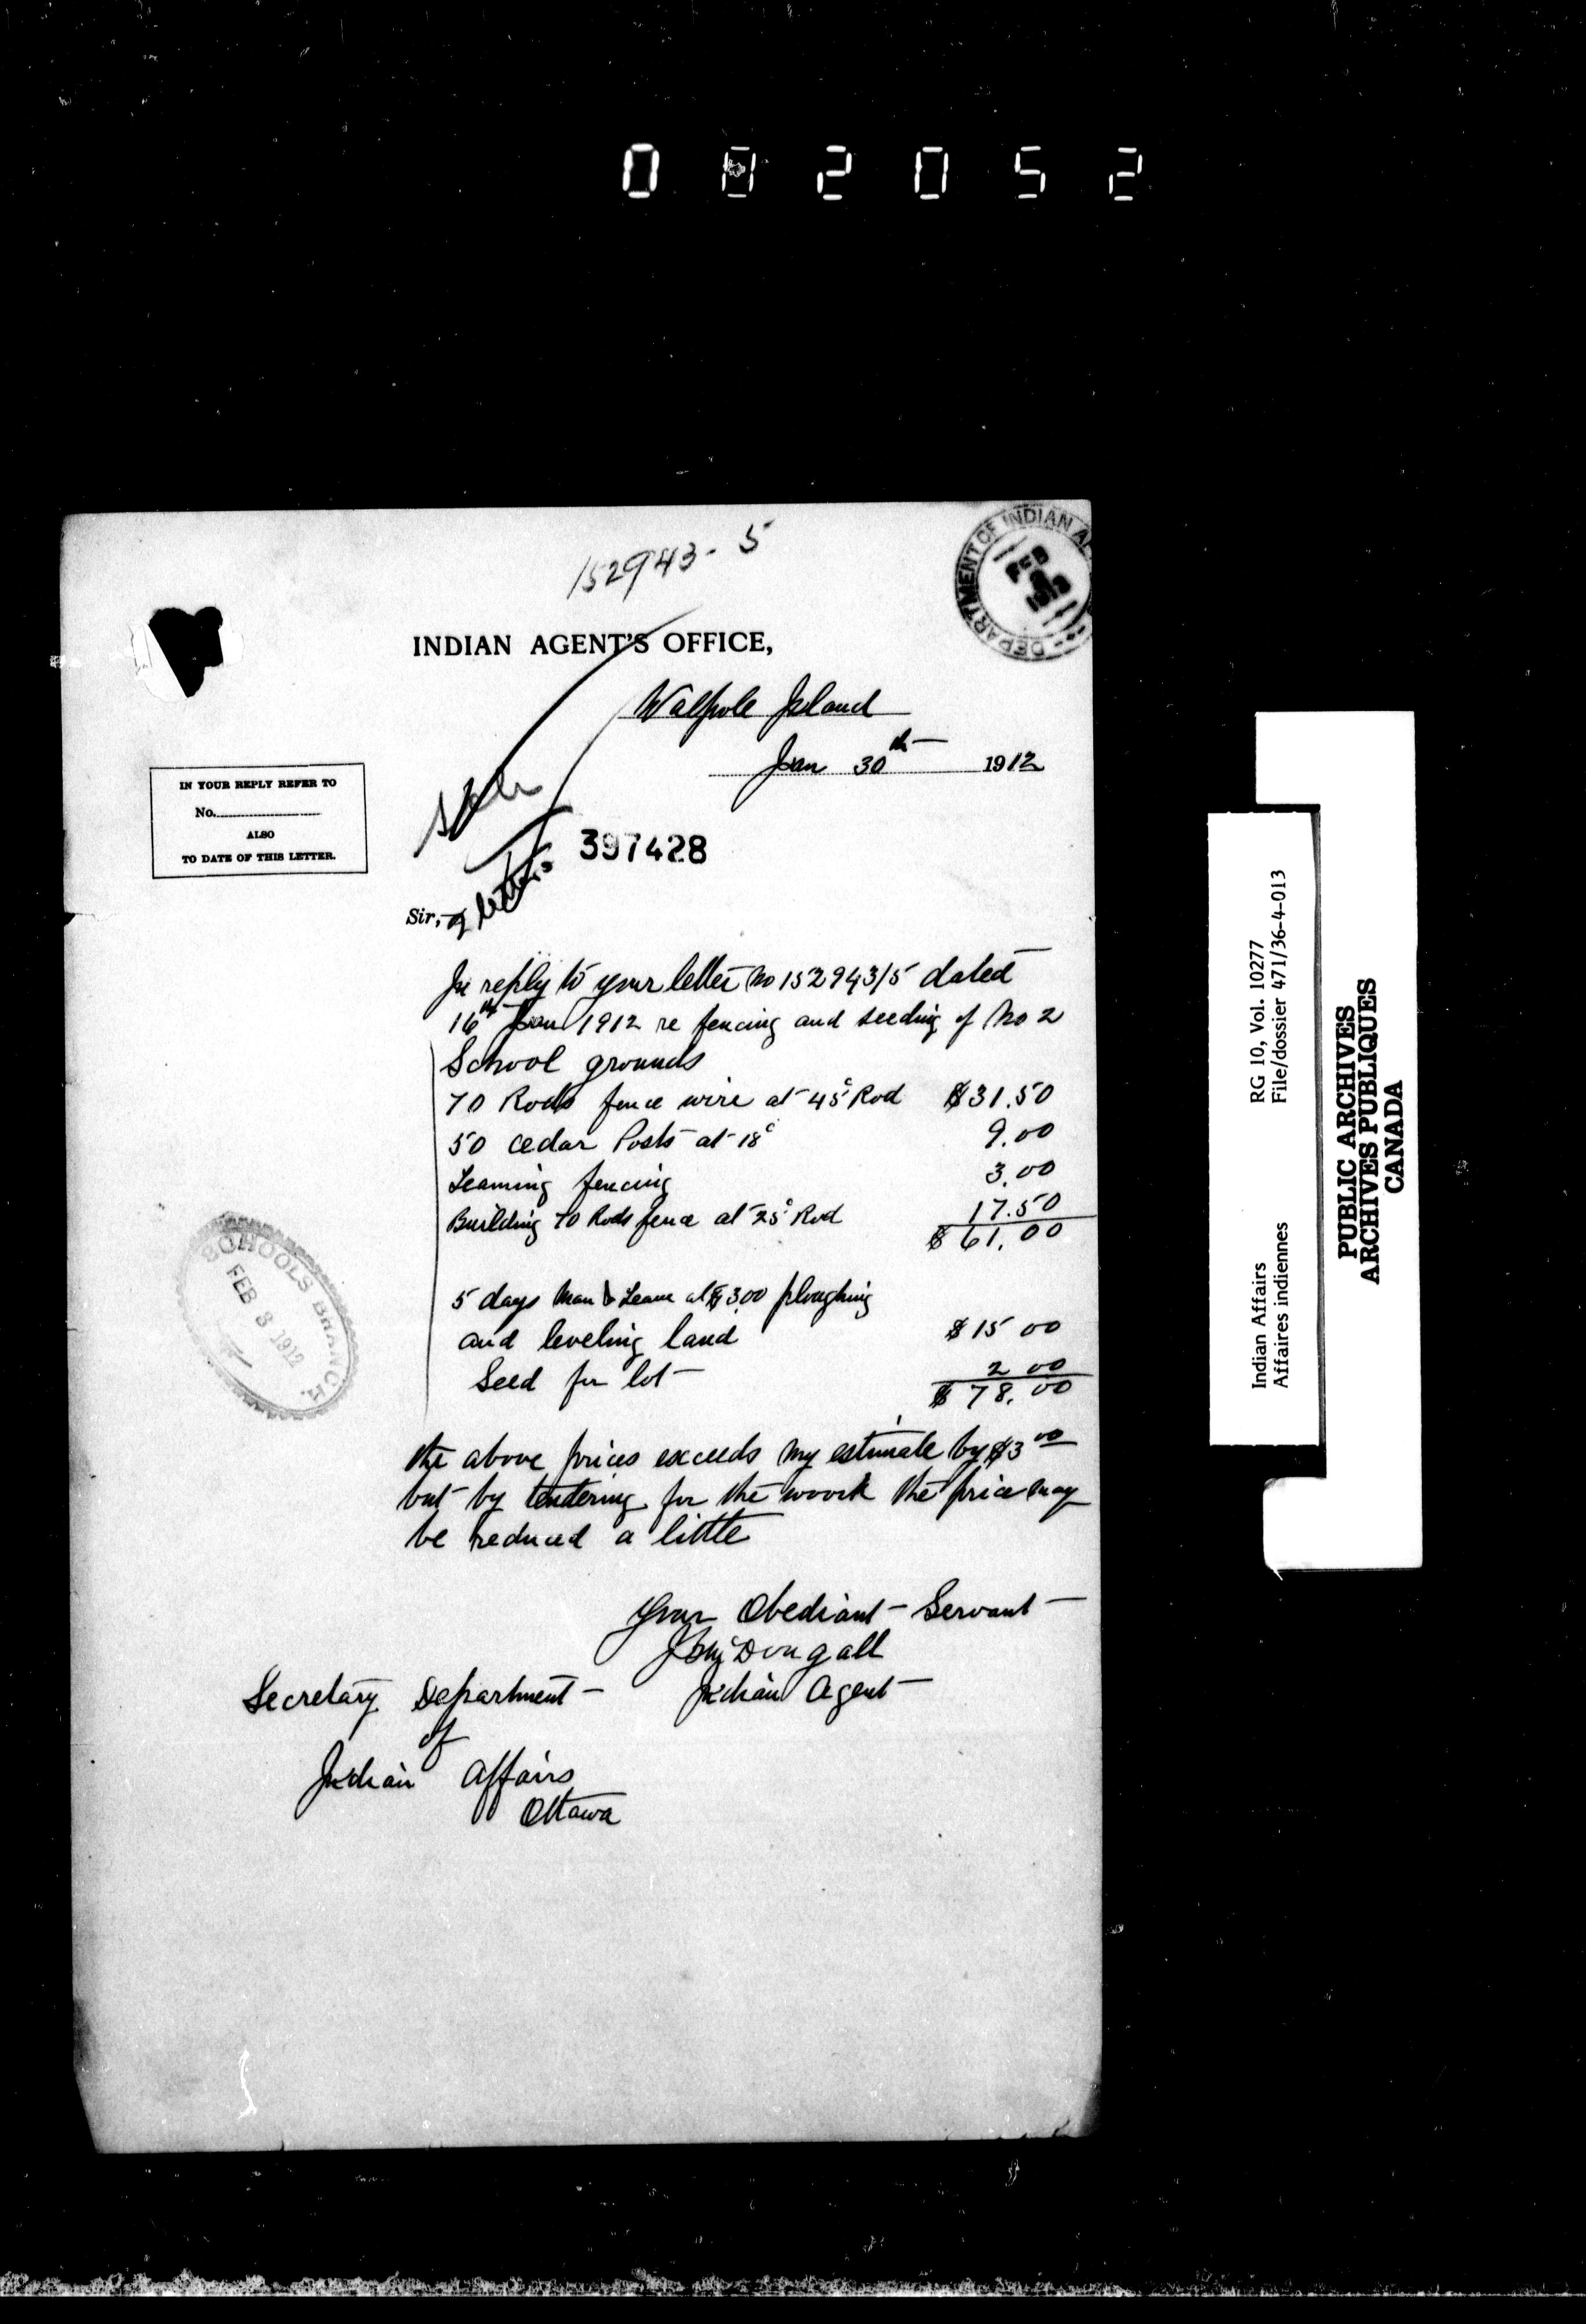 0 0 2 0 5 2
152943-5
DEPARTMENT OF INDIAN AF
FEB
INDIAN AGENT'S OFFICE,
Walpole Island
Jan 30th 1912
IN YOUR REPLY REFER TO
No.
ALSO
TO DATE OF THIS LETTER.
397428
Sir,
2 letters
In reply to your letter No 152943/5 dated
16th Jan 1912 re fencing and seeding of No 2
School grounds
70 Rods fence wire at 45c Rod $31.50
50 cedar Posts at 18c 9.00
Teaming fencing 3.00
Building 70 Rods fence at 25c Rod 17.50
$61.00
5 days man & Team at $3.00 ploughing
and leveling land $15 00
Seed for lot 2 00
$78.00
the above prices exceeds my estimate by $3 00
but by tendering for the woork the price may
be reduced a little
Your Obediant Servant
McDougall
Indian Agent
Secretary Department
of
Indian Affairs
Ottawa
SCHOOLS BRANCH.
FEB 3 1912
Indian Affairs RG 10, Vol. 10277
Affaires indiennes File/dossier 471/36-4-013
PUBLIC ARCHIVES
ARCHIVES PUBLIQUES
CANADA